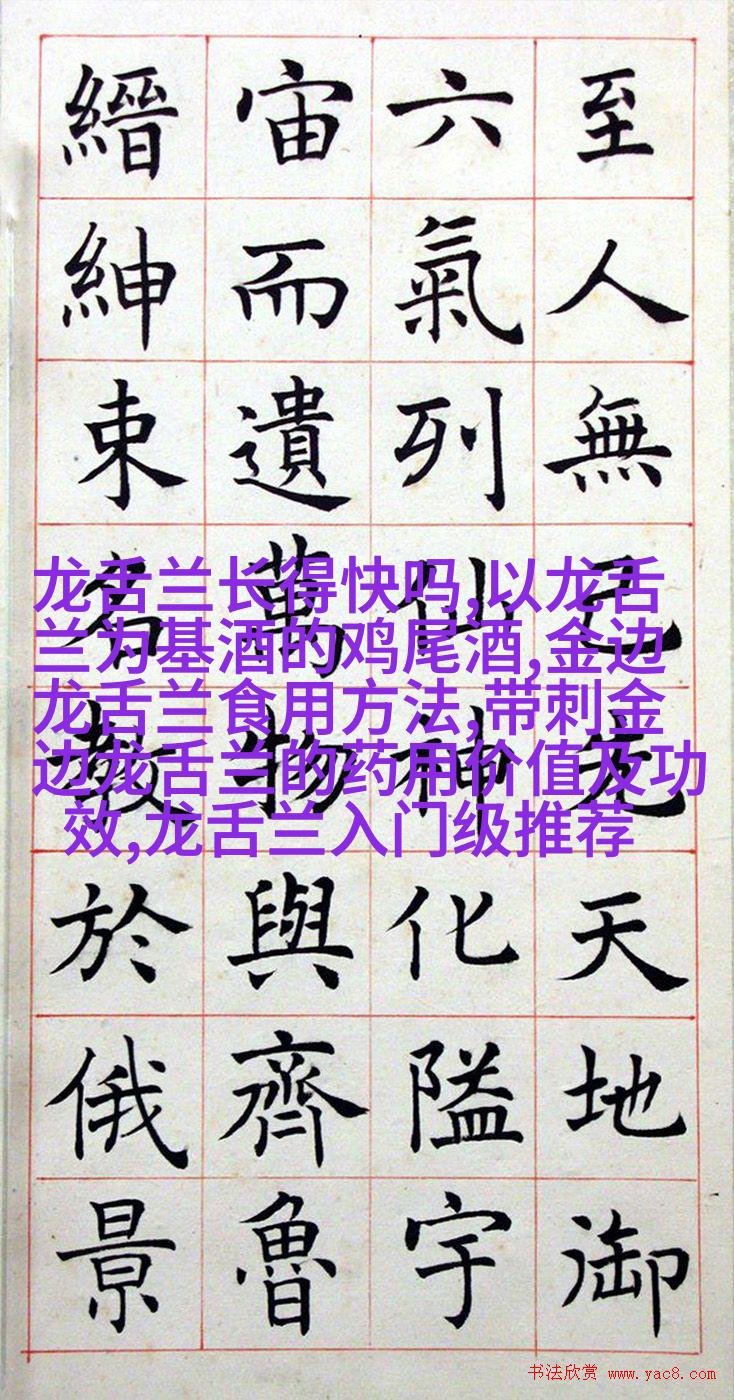 至人無己先天地御
六氣列仙神化隘宇
宙而遺萬物與齊魯
縉紳束名教於俄景
龙舌兰长得快吗,以龙舌
兰为基酒的鸡尾酒,金边
龙舌兰食用方法,带刺金
边龙舌兰的药用价值及功
效,龙舌兰入门级推荐
书法欣赏 www.yac8.com